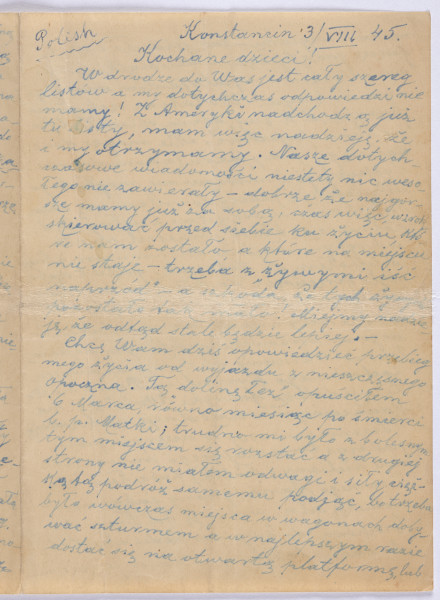 Polish
Konstancin 3/VIII 45.
Kochane dzieci!
W drodze do Was jest cały szereg
listów a my dotychczas odpowiedzi nie
mamy! Z Ameryki nadchodzą już
tu listy, mam więc nadzieję, że
i my otrzymamy. Nasze dotych
czasowe wiadomości niestety nic weso
łego nie zawierały – dobrze że najgor-
sze mamy już za sobą, czas więc wzrok
skierować przed siebie ku życiu któ
re nam zostało a które na miejscu
nie staje – trzeba z żywymi iść
naprzód" – a szkoda, że tych
pozostało tak mało! Miejmy nadzie
ję, że odtąd stale będzie lepiej. –
Chcę Wam dziś opowiedzieć przebieg
mego życia od wyjazdu z nieszczęsnego
Opoczna. Tą dolinę Łez, opuściłem
6 Marca, równo miesiąc po śmierci
ś. p. Matki; trudno mi było z bolesnym
tym miejscem się rozstać a z drugiej
strony nie miałem odwagi i siły cięż-
ką podróż samemu podjąć, bo trzeba
było wówczas miejsca w wagonach doby-
wać szturmem a w najlepszym razie
dostać się na otwartą platformę, lub